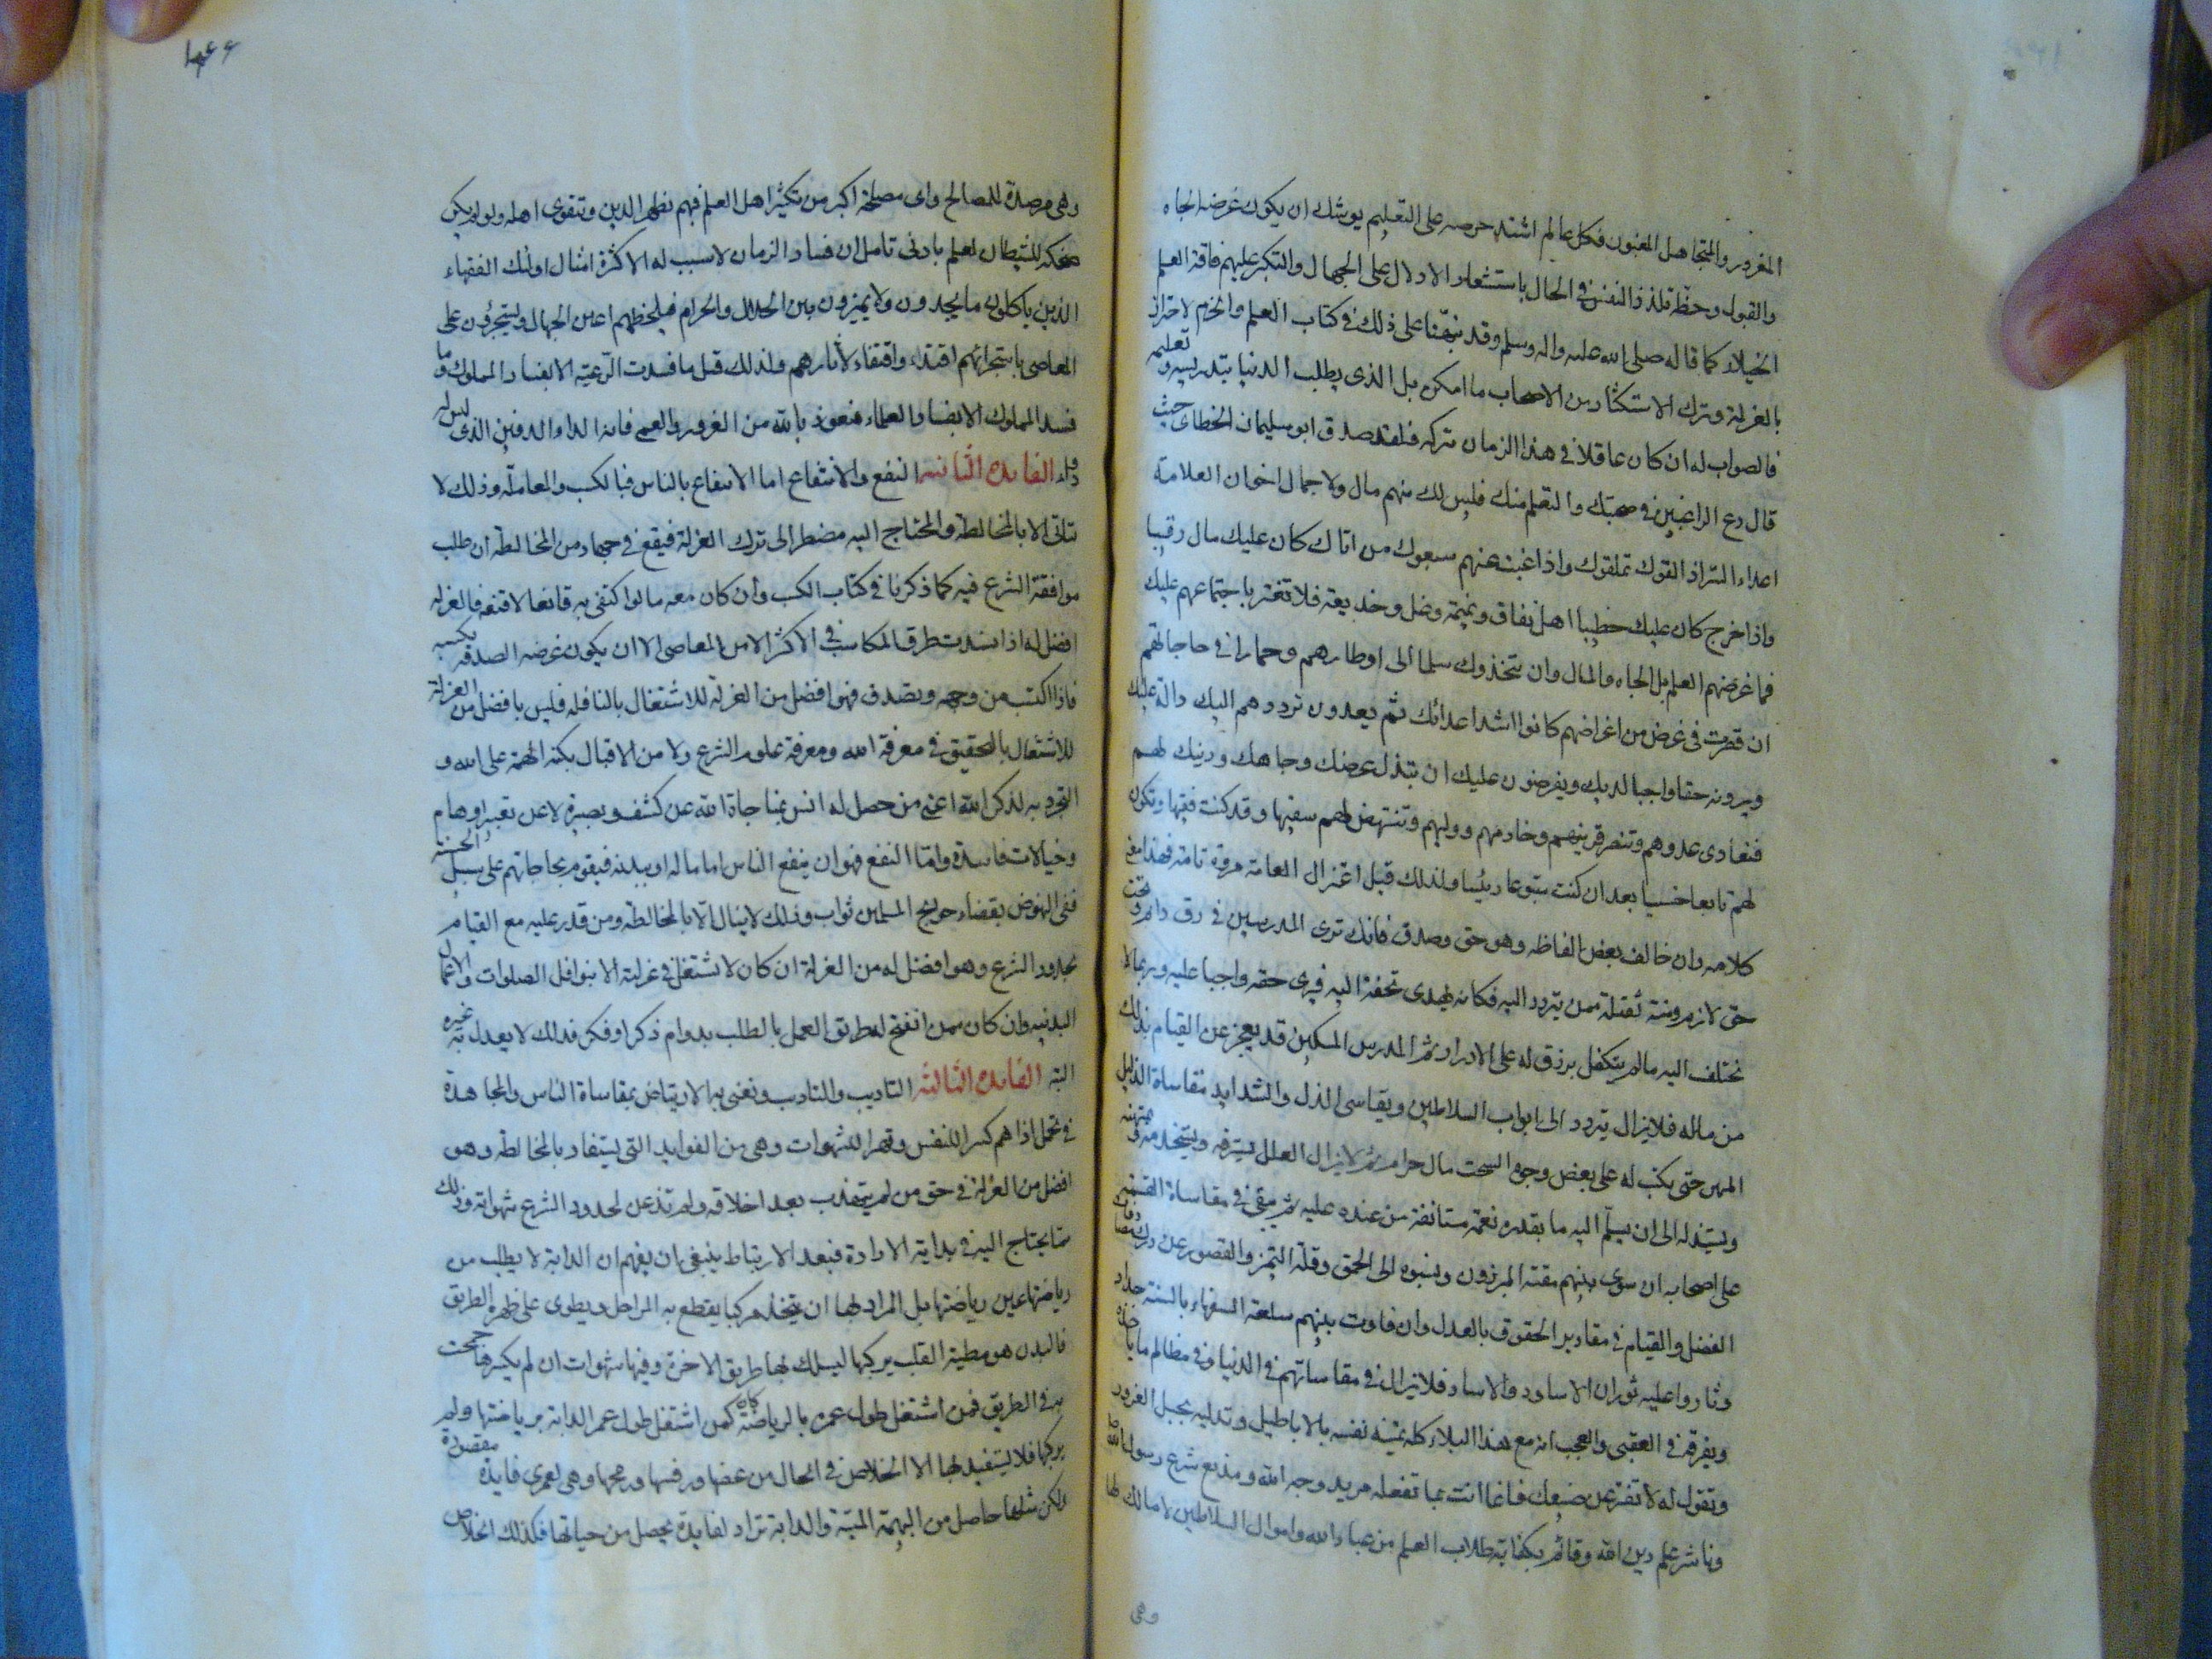 المغرور والمتجاهل المغبون فكل عالم اشتد حرصه على التعليم يوشك ان يكون غرضه الجاه
والقبول وحظه تلذذ النفس في الحال باستشعار الادلال على الجهال والتكبر عليهم فآفة العلم
الخيلاء كما قاله صلى الله عليه واله وسلم وقد نبهنا على ذلك في كتاب العلم والحزم الاحتراز
بالعزلة وترك الاستكثار من الاصحاب ما امكن بل الذي يطلب الدنيا بتدريسه وتعليمه
فالصواب له ان كان عاقلا في هذا الزمان تركه فلقد صدق ابو سليمان الخطابي حيث
قال دع الراغبين في صحبتك والتعلم منك فليس لك منهم مال ولا جمال اخوان العلانية
اعداء السر اذا لقوك تملقوك واذا غبت عنهم سبعوك من اتاك كان عليك رقيبا
واذا خرج كان عليك خطيبا اهل نفاق ونميمة وغل وخديعة فلا تغتر باجتماعهم عليك
فما غرضهم العلم بل الجاه والمال وان يتخذوك سلما الى اوطارهم وحمارا في حاجاتهم
ان قصرت في غرض من اغراضهم كانوا اشد اعدائك ثم يعدون ترددهم اليك دالة عليك
ويرونه حقا واجبا لديك ويفرضون عليك ان تبذل عرضك وجاهك ودينك لهم
فتعادي عدوهم وتنصر قرينهم وخادمهم ووليهم وتنتهض لهم سفيها وقد كنت فقيها وتكون
لهم تابعا خسيسا بعد ان كنت متبوعا رئيسا ولذلك قيل اعتزال العامة مروة تامة فهذا معنى
كلامه وان خالف بعض الفاظه وهو حق وصدق فانك ترى المدرسين في رق دائم وتحت
حق لازم ومنة ثقيلة ممن يتردد اليه فكانه يهدي تحفة اليه فيرى حقه واجبا عليه وربما لا
تختلف اليه ما لم يتكفل برزق له على الادرار ثم المدرس المسكين قد يعجز عن القيام بذلك
من ماله فلا يزال يتردد الى ابواب السلاطين ويقاسي الذل والشدايد مقاساة الذليل
المهين حتى يكتب له على بعض وجوه السحت مال حرام ثم لا يزال العامل يسترقه ويستخدمه ويمتهنه
ويستذله الى ان يسلم اليه ما يقدره نعمة مستانفة من عنده عليه ثم يبقى في مقاساة القسمة
على اصحابه ان سوى بينهم مقته المبرزون ونسبوه الى الحمق وقلة التميز والقصور عن درك مصارفات
الفضل والقيام في مقادير الحقوق بالعدل وان فاوت بينهم سلقه السفهاء بالسنة حداد
وثاروا عليه ثوران الاساود والاساد فلا يزال في مقاساتهم في الدنيا وفي مظالم ما ياخذه
ويفرقه في العقبى والعجب انه مع هذا البلاء كله تمنيه نفسه بالاباطيل وتدليه بحبل الغرور
وتقول له لا تفتر عن صنيعك فانما انت بما تفعله مريد وجه الله ومذيع شرع رسول الله
وناشر علم دين الله وقائم بكفاية طلاب العلم من عباد الله واموال السلاطين لا مالك لها
وهي
وهي مرصدة للمصالح واي مصلحة اكبر من تكثير اهل العلم فبهم يظهر الدين ويتقوى اهله ولو لم يكن
ضحكة للشيطان لعلم بادنى تامل ان فساد الزمان لا سبب له الا كثرة امثال اولئك الفقهاء
الذين ياكلون ما يجدون ولا يميزون بين الحلال والحرام فيلحظهم اعين الجهال ويستجرؤن على
المعاصي باستجرائهم اقتداء واقتفاء لآثارهم ولذلك قيل ما فسدت الرعية الا بفساد الملوك وما
فسد الملوك الا بفساد العلماء فنعوذ بالله من الغرور والعمى فانه الداء الدفين الذي ليس له
دواء الفايدة الثانية النفع والانتفاع اما الانتفاع بالناس فبالكسب والمعاملة وذلك لا
يتاتى الا بالمخالطة والمحتاج اليه مضطر الى ترك العزلة فيقع في جهاد من المخالطة ان طلب
موافقة الشرع فيه كما ذكرنا في كتاب الكسب وان كان معه ما لو اكتفى به قانعا لاقنعه فالعزلة
افضل له اذا انسدت طرق المكاسب في الاكثر الا من المعاصي الا ان يكون غرضه الصدقة بكسبه
فاذا اكتسب من وجهه وتصدق فهو افضل من العزلة للاشتغال بالنافلة فليس بافضل من العزلة
للاشتغال بالتحقيق في معرفة الله ومعرفة علوم الشرع ولا من الاقبال بكنه الهمة على الله و
التجرد به لذكر الله اعني من حصل له انس بمناجاة الله عن كشف وبصيرة لا عن تعبير اوهام
وخيالات فاسدة واما النفع فهو ان ينفع الناس اما بماله او ببدنه فيقوم بحاجاتهم على سبيل الحسبة
ففي النهوض بقضاء حوايج المسلمين ثواب وذلك لا ينال الا بالمخالطة ومن قدر عليه مع القيام
بحدود الشرع وهو افضل له من العزلة ان كان لا يشتغل في عزلته الا بنوافل الصلوات والاعمال
البدنية وان كان ممن انفتح له طريق العمل بالطلب بدوام ذكر او فكر فذلك لا يعدل به غيره
البتة الفايدة الثالثة التاديب والتادب ونعني به الارتياض بمقاساة الناس والمجاهدة
في تحمل اذاهم كسرا للنفس وقهرا للشهوات وهي من الفوايد التي يستفاد بالمخالطة وهو
افضل من العزلة في حق من لم يتهذب بعد اخلاقه ولم تذعن لحدود الشرع شهواته وذلك
مما يحتاج اليه في بداية الارادة فبعد الارتباط ينبغي ان يفهم ان الدابة لا يطلب من
رياضتها عين رياضتها بل المراد لها ان يتخذ مركبا يقطع به المراحل ويطوى على ظهره الطريق
فالبدن هو مطية القلب يركبها ليسلك بها طريق الاخرة وفيها شهوات ان لم يكسرها جمحت
به في الطريق فمن اشتغل طول عمره بالرياضة كان كمن اشتغل طول عمر الدابة برياضتها ولم
يركبها فلا يستفيد بها الا الخلاص في الحال من عضها ورفسها ورمحها وهي لعمري فايدة مقصودة
ولكن مثلها حاصل من البهيمة الميتة والدابة تراد لفايدة يحصل من حياتها فكذلك الخلاص